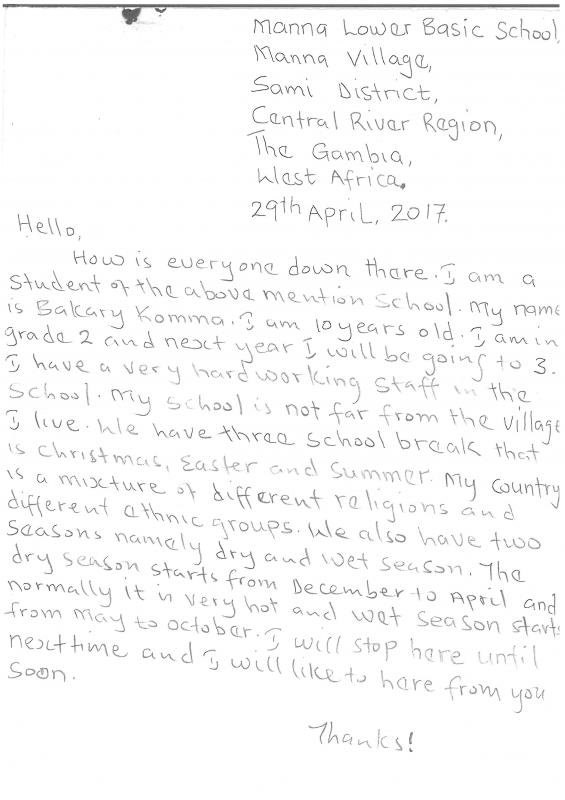 Manna Lower Basic School,
Manna Village,
Sami District,
Central River Region,
The Gambia,
West Africa.
29th April, 2017.
Hello,
How is everyone down there. I am a
student of the above mention School. My name
is Bakary Komma. I am 10 years old. I am in
grade 2 and next year I will be going to 3.
I have a very hard working staff in the
School. My school is not far from the village
I live. We have three school break that
is Christmas, Easter and Summer. My country
is a mixture of different religions and
different ethnic groups. We also have two
Seasons namely dry and wet season. The
dry season starts from December to April and
normally it is very hot and wet season starts
from May to October. I will stop here until
next time and I will like to hare from you
Soon.
Thanks!